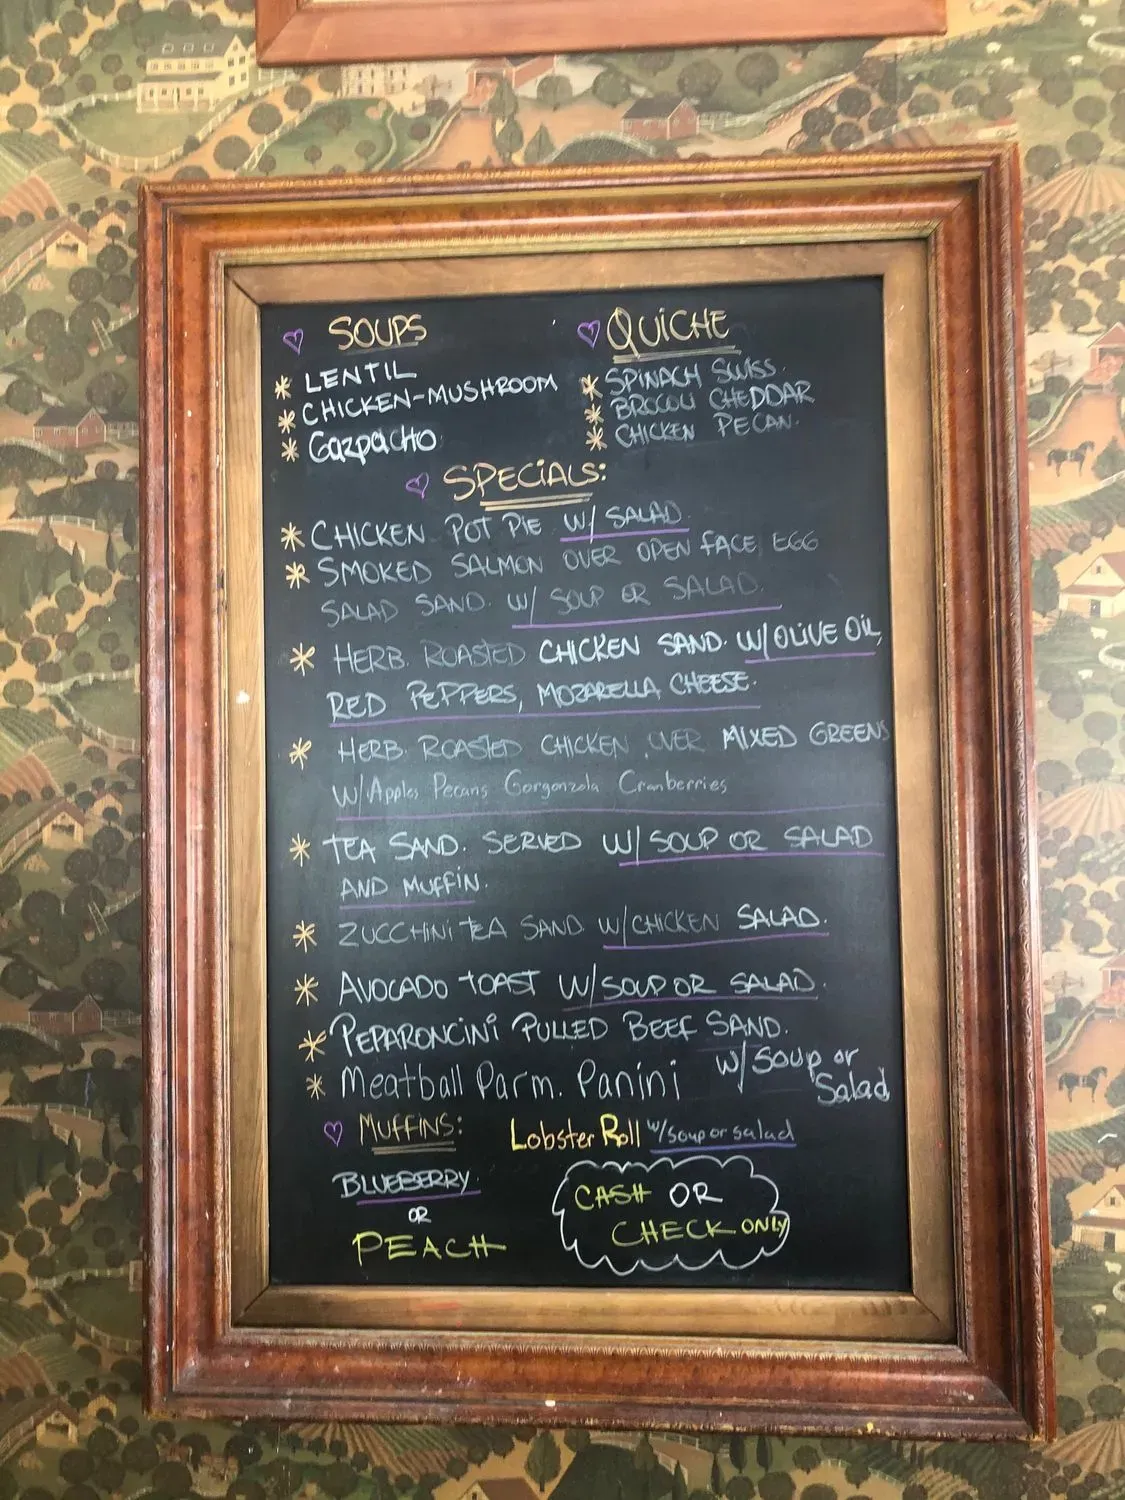 SOUPS
LENTIL
CHICKEN-MUSHROOM
Gazpacho
QUICHE
SPINACH SWISS.
BROCOLI CHEDDAR
CHICKEN PECAN.
SPECIALS:
CHICKEN POT PIE W/ SALAD
SMOKED SALMON OVER OPEN FACE EGG
SALAD SAND. W/ SOUP OR SALAD.
HERB. ROASTED CHICKEN SAND. W/OLIVE OIL,
RED PEPPERS, MOZARELLA CHEESE.
HERB ROASTED CHICKEN OVER MIXED GREENS
W/Apples Pecans Gorgonzola Cranberries
TEA SAND. SERVED W/ SOUP OR SALAD
AND MUFFIN.
ZUCCHINI TEA SAND W/CHICKEN SALAD.
AVOCADO TOAST W/SOUP OR SALAD.
PEPARONCINI PULLED BEEF SAND.
Meatball Parm. Panini W/ Soup or
Salad
MUFFINS:
BLUEBERRY.
OR
PEACH
Lobster Roll w/soup or salad
CASH OR
CHECK ONLY